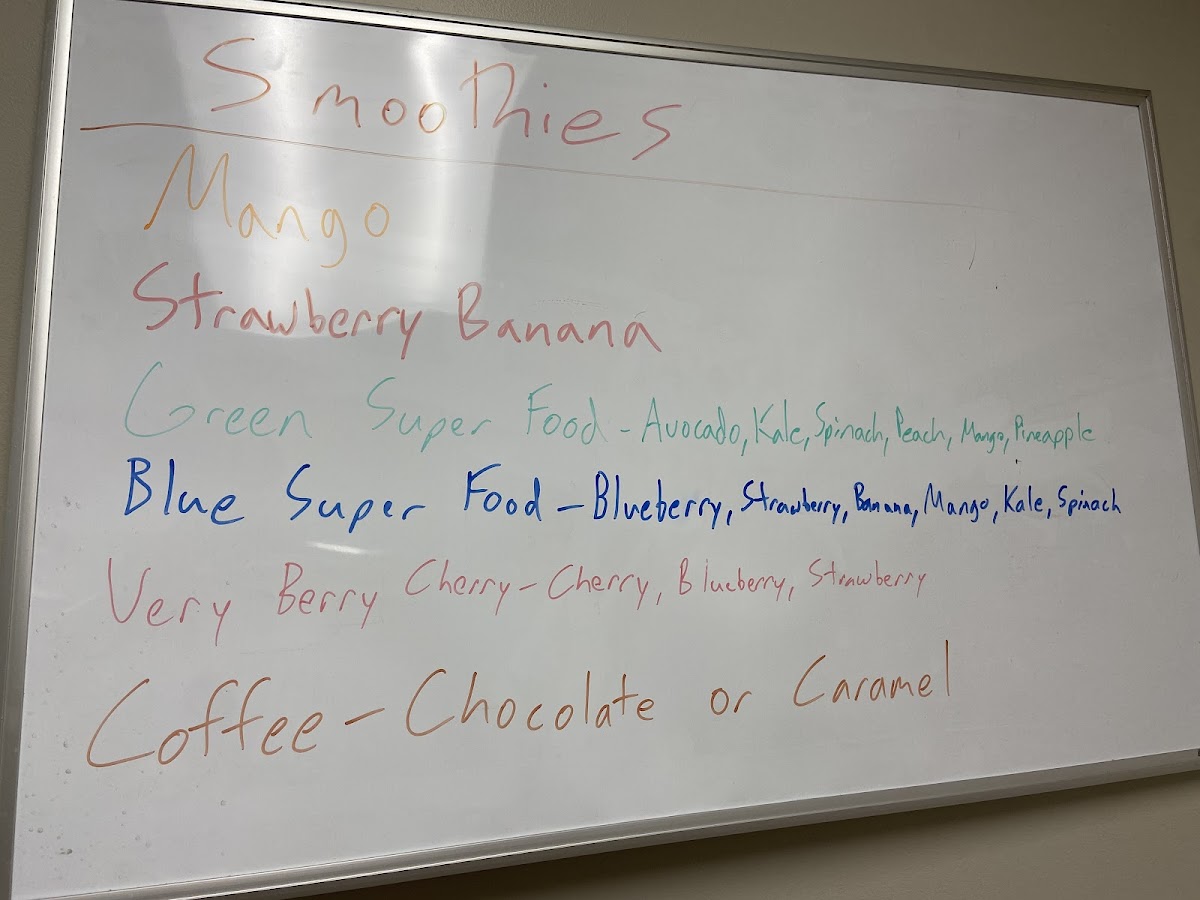 Smoothies
Mango
Strawberry Banana
Green Super Food - Avocado, Kale, Spinach, Peach, Mango, Pineapple
Blue Super Food - Blueberry, Strawberry, Banana, Mango, Kale, Spinach
Very Berry Cherry - Cherry, Blueberry, Strawberry
Coffee - Chocolate or Caramel